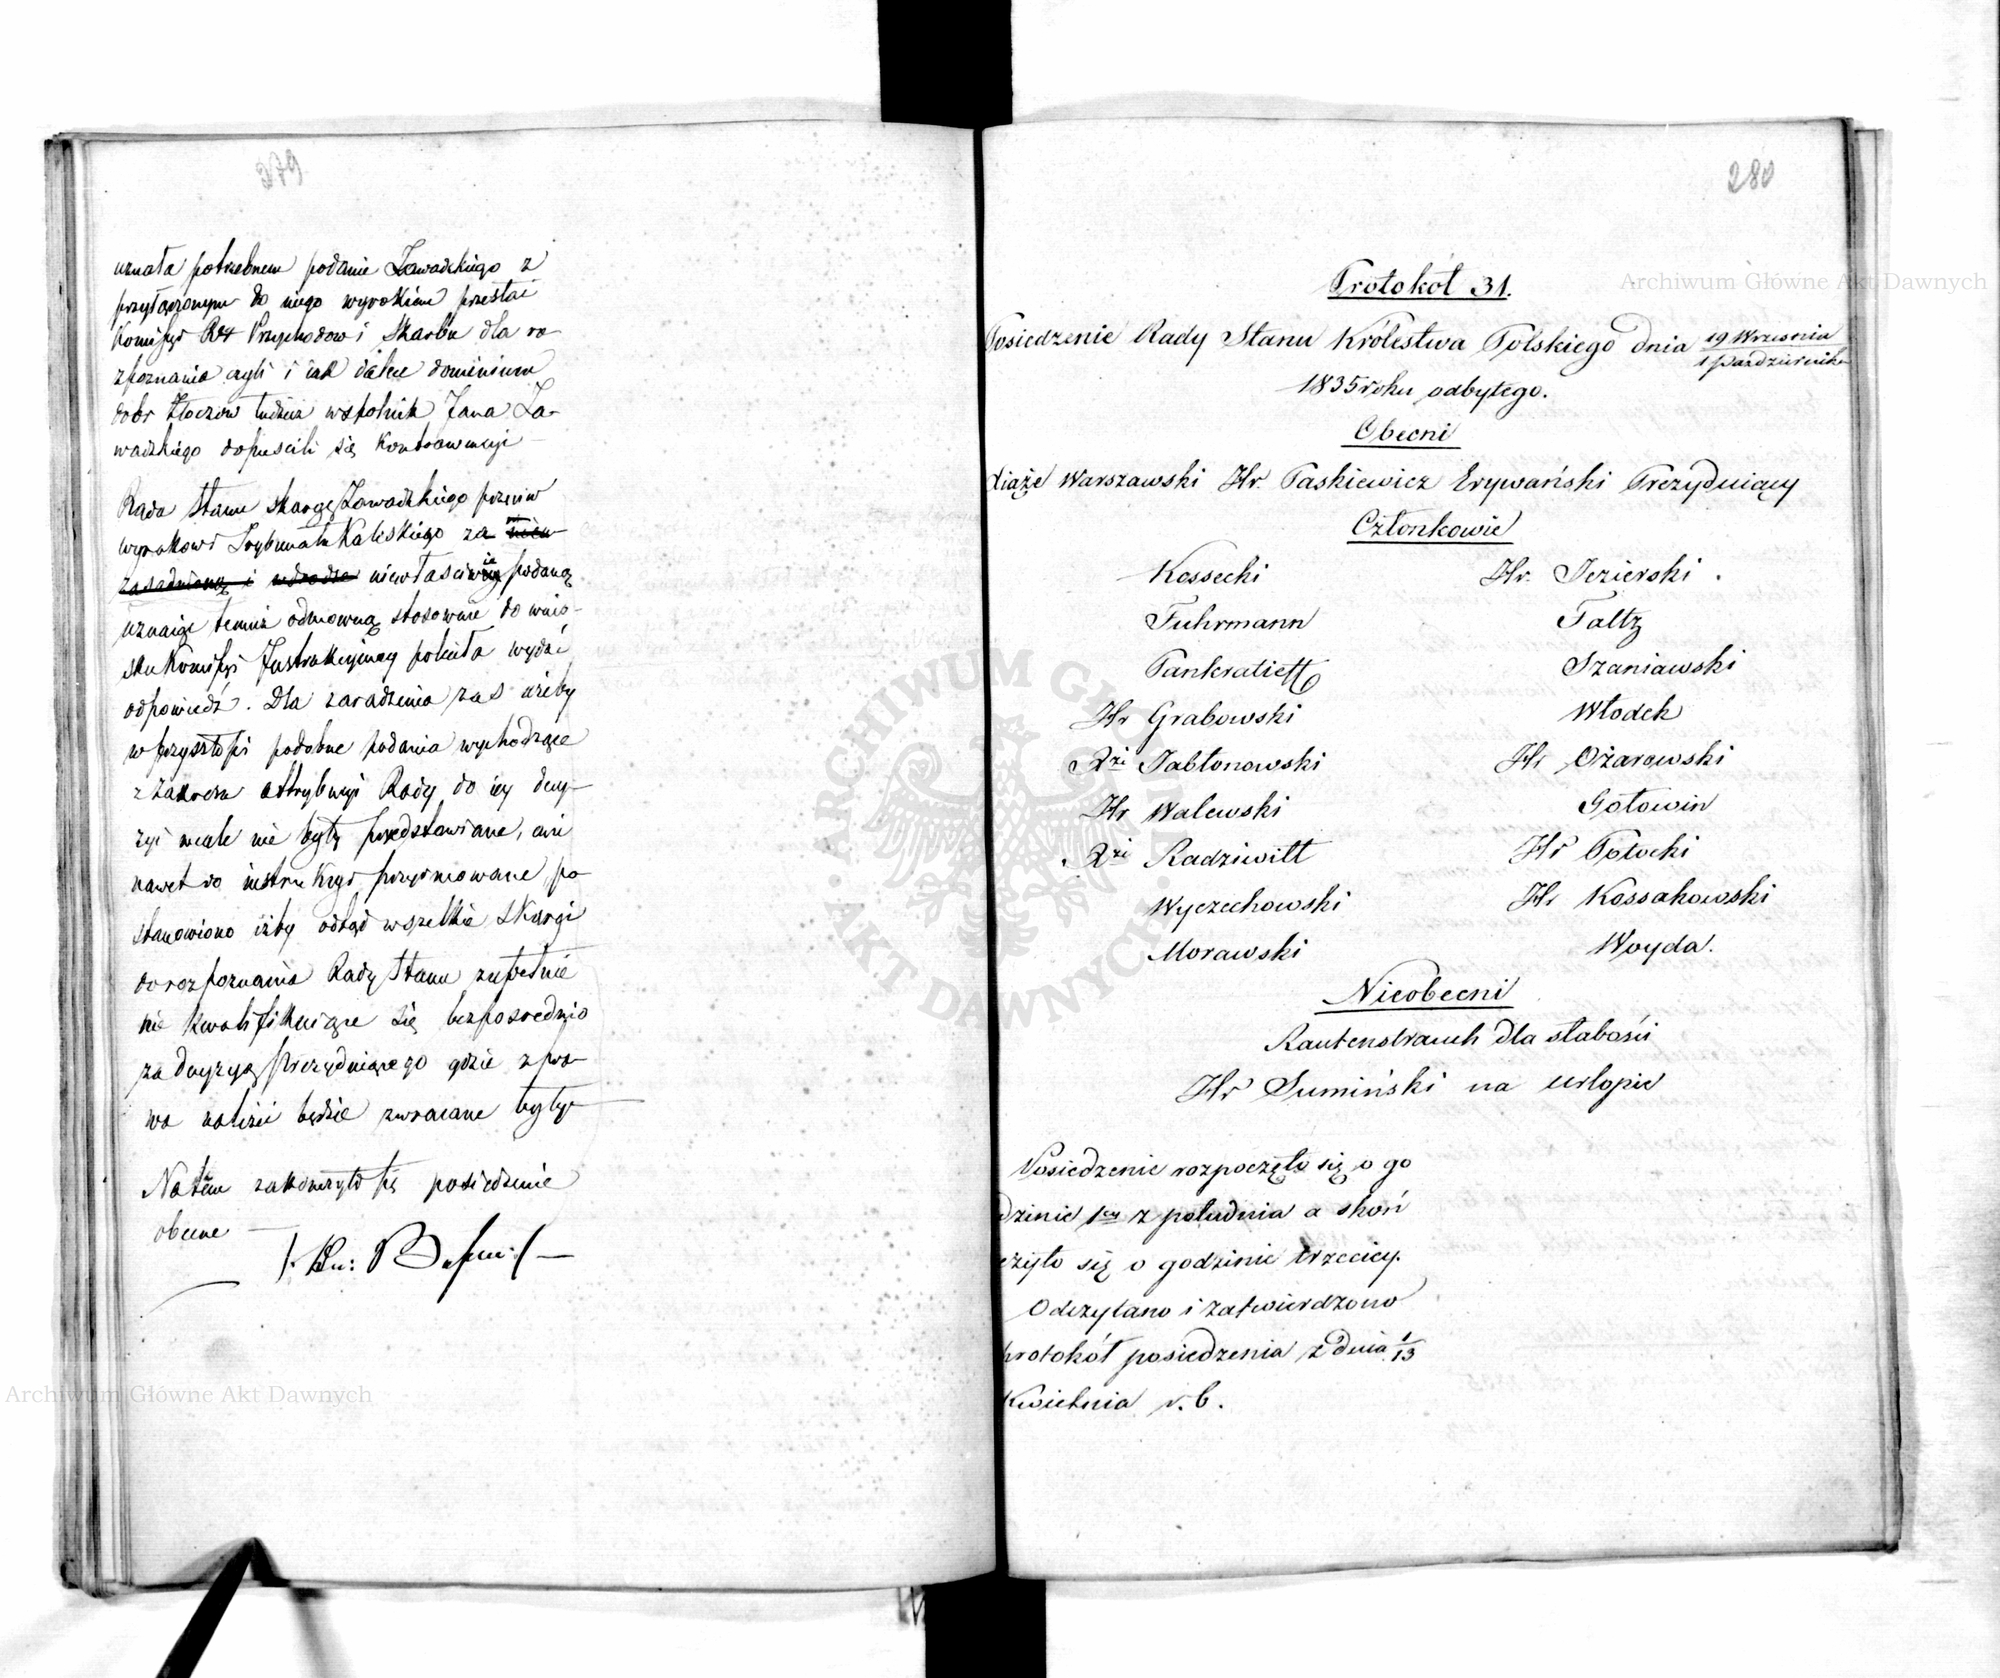 279
uznała potrzebnem podanie Zawadzkiego z
przyłączonym do niego wyrokiem przesłać
Kommissyi Przychodow i Skarbu dla ro-
zpoznania czyli i iak dalece dominium
dobr Złoczew tudzież wspolnik Jana Za-
wadzkiego dopuscili się Kontrawencyi
Rada Stanu skargę Zawadzkiego przeciw
wyrokowi Trybunału Kaliskiego za
niewłaściwie podaną
uznaiąc temuż odmowną stosownie do wnio-
sku Kommissyi Instrukcyiney poleciła wydać
odpowiedź. Dla zaradzenia zaś ażeby
w przyszłości podobne podania wychodzące
z zakresu attrybucyi Rady do iey decy-
zyi wcale nie były przedstawiane, ani
nawet do instrukcyi przyimowane, po-
stanowiono iżby odtąd wszelkie skargi
do rozpoznania Rady Stanu zupełnie
nie kwalifikuiące się bezpośrednio
za decyzyą Prezyduiącego gdzie z pra-
wa należeć będzie zwracane były
Na tem zakończyło się posiedzenie
obecne
280
Protokół 31.
Posiedzenie Rady Stanu Królestwa Polskiego dnia 19 Wrzesnia
1 Pazdziernika
1835 roku odbytego.
Obecni
Xiąże Warszawski Hr. Paskiewicz Erywański Prezyduiący
Członkowie
Kossecki Hr. Jezierski.
Fuhrmann Faltz
Pankratieff Szaniawski
Hr Grabowski Włodek
Xże Jabłonowski Hr Ożarowski
Hr Walewski Gołowin
Xże Radziwiłł Hr Potocki
Wyczechowski Hr Kossakowski
Morawski Woyda.
Nieobecni
Rautenstrauch dla słabości
Hr Sumiński na urlopie
Posiedzenie rozpoczęło się o go
dzinie 1ey z południa a skoń
czyło się o godzinie trzeciey.
Odczytano i zatwierdzono
protokół posiedzenia z dnia 1/13
Kwietnia r. b.
Archiwum Główne Akt Dawnych
Archiwum Główne Akt Dawnych
ARCHIWUM GŁÓWNE · AKT DAWNYCH ·